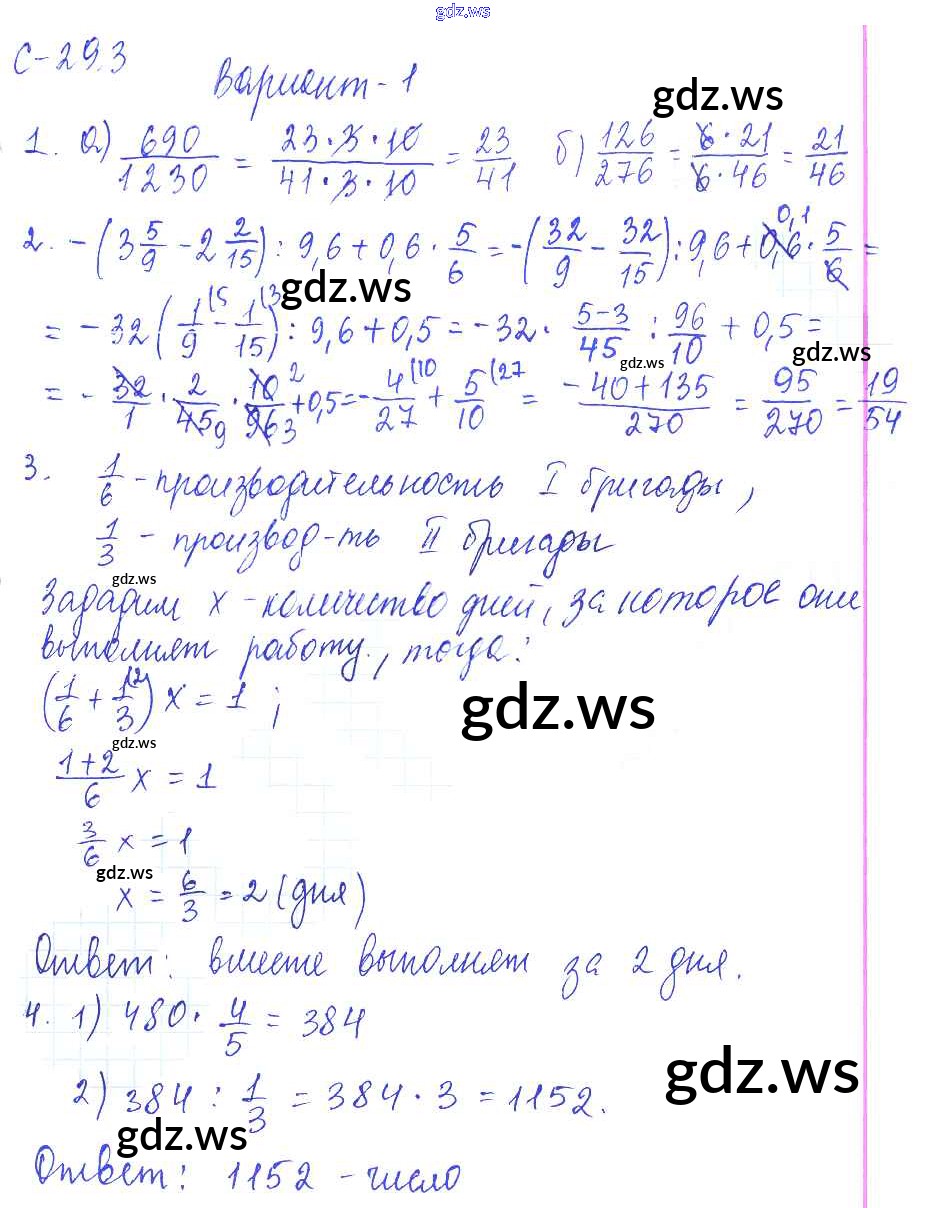 gdz.ws
С-29.3
Вариант-1
gdz.ws
1. а) 690/1230 = 23·3·10/41·3·10 = 23/41 б) 126/276 = 6·21/6·46 = 21/46
2. -(3 5/9 - 2 2/15) : 9,6 + 0,6 · 5/6 = -(32/9 - 32/15) : 9,6 + 0,6 (0,1) · 5/6 =
gdz.ws
= -32 (1/9 (5 - 1/15 (3) : 9,6 + 0,5 = -32 · 5-3/45 : 96/10 + 0,5 =
gdz.ws gdz.ws
= -32/1 · 2/45 9 · 10 2/96 3 + 0,5 = -4/27 (10 + 5/10 (27 = -40+135/270 = 95/270 = 19/54
3. 1/6 - производительность I бригады,
1/3 - производ-ть II бригады
gdz.ws
Зададим x - количество дней, за которое они
выполнят работу, тогда:
(1/6 + 1/3 (2) x = 1 ;
gdz.ws
gdz.ws
1+2/6 x = 1
3/6 x = 1
gdz.ws
x = 6/3 = 2 (дня)
Ответ: вместе выполнят за 2 дня.
4. 1) 480 · 4/5 = 384
gdz.ws
2) 384 : 1/3 = 384 · 3 = 1152.
gdz.ws
Ответ: 1152 - число